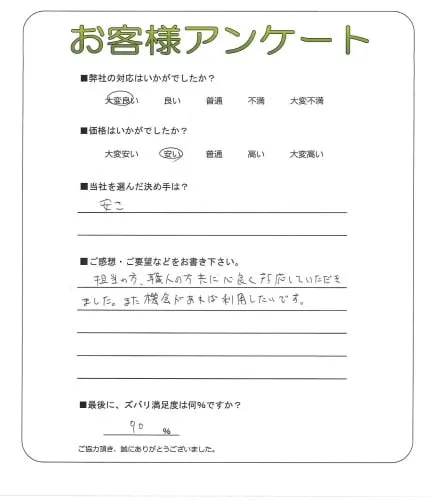 お客様アンケート
■弊社の対応はいかがでしたか？
大変良い 良い 普通 不満 大変不満
■価格はいかがでしたか？
大変安い 安い 普通 高い 大変高い
■当社を選んだ決め手は？
安さ
■ご感想・ご要望などをお書き下さい。
担当の方、職人の方共に心良く対応していただき
ました。また機会があれば利用したいです。
■最後に、ズバリ満足度は何%ですか？
90 %
ご協力頂き、誠にありがとうございました。